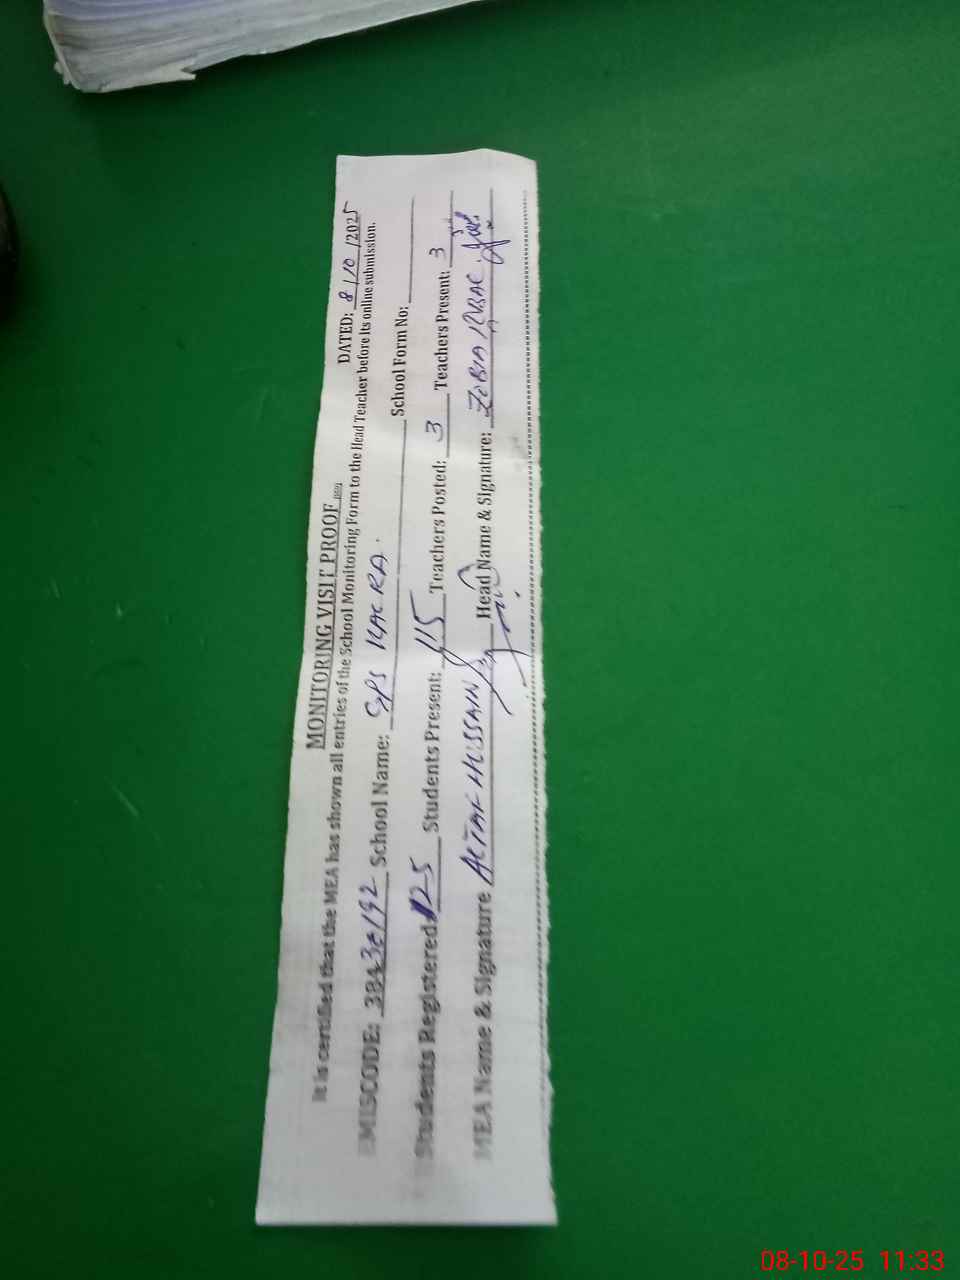 MONITORING VISIT PROOF
DATED: 8/10/2025
It is certified that the MEA has shown all entries of the School Monitoring Form to the Head Teacher before its online submission.
EMISCODE: School Name: GPS School Form No:
Students Registered: 125 Students Present: 115 Teachers Posted: 3 Teachers Present: 3
MEA Name & Signature ALTAF HUSSAIN Head Name & Signature: ZOBIA IQBAL
08-10-25 11:33